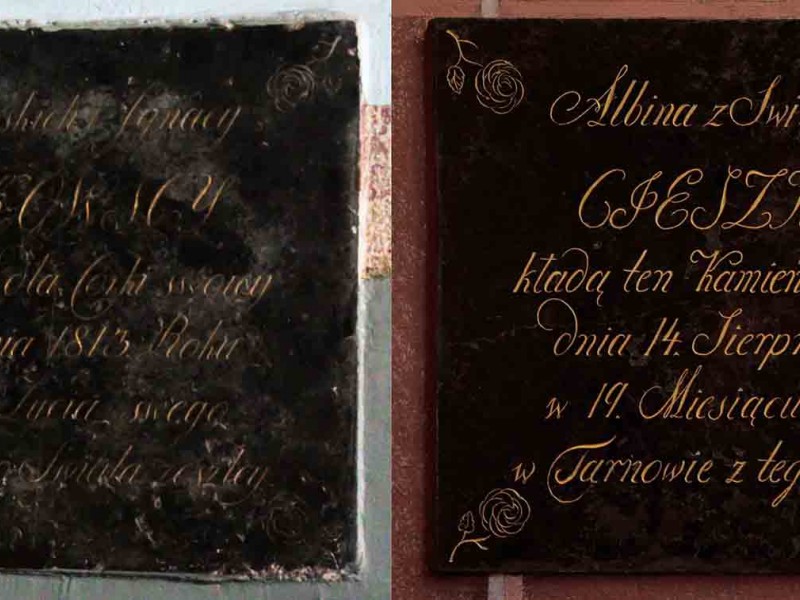 skich i Ignacy
KOWSCY
dla Corki swoiey
nia 1813 Roku
Życia swego
Swiata zeszłey
Albina z Swi
CIESZK
kładą ten Kamień
dnia 14. Sierpn
w 19. Miesiącu
w Tarnowie z teg